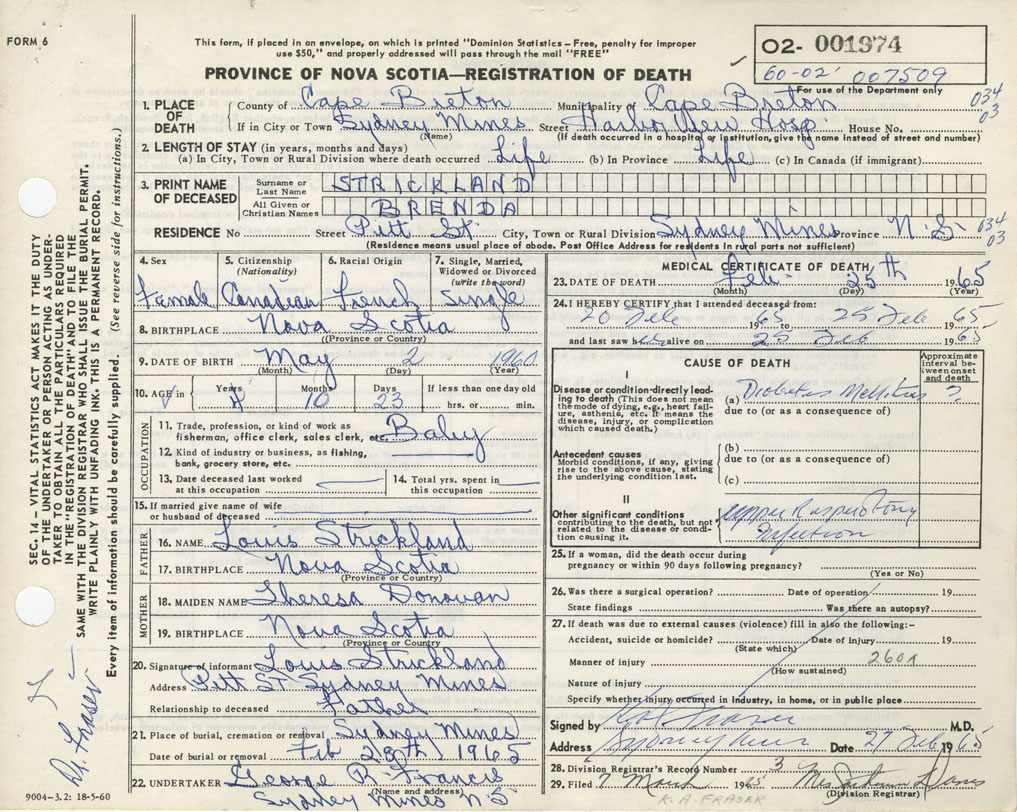 FORM 6
This form, if placed in an envelope, on which is printed "Dominion Statistics – Free, penalty for improper
use $50," and properly addressed will pass through the mail "FREE"
PROVINCE OF NOVA SCOTIA—REGISTRATION OF DEATH
02- 001974
60-02' 007509
For use of the Department only
034
03
1. PLACE OF DEATH County of Cape Breton Municipality of Cape Breton
If in City or Town Sydney Mines Street Harbor View Hosp House No.
(Name) (If death occurred in a hospital or institution, give the name instead of street and number)
2. LENGTH OF STAY (in years, months and days)
(a) In City, Town or Rural Division where death occurred Life (b) In Province Life (c) In Canada (if immigrant)
3. PRINT NAME OF DECEASED Surname or Last Name STRICKLAND
All Given or Christian Names BRENDA
RESIDENCE No Street Pitt St. City, Town or Rural Division Sydney Mines Province N.S. 034
03
(Residence means usual place of abode. Post Office Address for residents in rural parts not sufficient)
4. Sex Female
5. Citizenship (Nationality) Canadian
6. Racial Origin French
7. Single, Married, Widowed or Divorced (write the word) Single
8. BIRTHPLACE Nova Scotia
(Province or Country)
9. DATE OF BIRTH May 2 1960
(Month) (Day) (Year)
10. AGE in Years 4 Months 10 Days 23 If less than one day old
hrs. or min.
OCCUPATION
11. Trade, profession, or kind of work as fisherman, office clerk, sales clerk, etc. Baby
12. Kind of industry or business, as fishing, bank, grocery store, etc.
13. Date deceased last worked at this occupation
14. Total yrs. spent in this occupation
15. If married give name of wife or husband of deceased
FATHER
16. NAME Louis Strickland
17. BIRTHPLACE Nova Scotia
(Province or Country)
MOTHER
18. MAIDEN NAME Theresa Donovan
19. BIRTHPLACE Nova Scotia
(Province or Country)
20. Signature of informant Louis Strickland
Address Pitt St Sydney Mines
Relationship to deceased Father
21. Place of burial, cremation or removal Sydney Mines
Date of burial or removal Feb 28th 1965
22. UNDERTAKER George R. Francis
(Name and address)
Sydney Mines N S
9004-3.2: 18-5-60
MEDICAL CERTIFICATE OF DEATH
23. DATE OF DEATH Feb 25th 1965
(Month) (Day) (Year)
24. I HEREBY CERTIFY that I attended deceased from:
20 Feb 1965 to 25 Feb 1965
and last saw her alive on 25 Feb 1965
CAUSE OF DEATH
Approximate interval between onset and death
I
Disease or condition directly leading to death (This does not mean the mode of dying, e.g., heart failure, asthenia, etc. It means the disease, injury, or complication which caused death.)
(a) Diabetes Mellitus ?
due to (or as a consequence of)
Antecedent causes
Morbid conditions, if any, giving rise to the above cause, stating the underlying condition last.
(b)
due to (or as a consequence of)
(c)
II
Other significant conditions contributing to the death, but not related to the disease or condition causing it.
Upper Respiratory
infection
25. If a woman, did the death occur during pregnancy or within 90 days following pregnancy?
(Yes or No)
26. Was there a surgical operation? Date of operation 19
State findings Was there an autopsy?
27. If death was due to external causes (violence) fill in also the following:-
Accident, suicide or homicide? Date of injury 19
(State which)
Manner of injury 260A
(How sustained)
Nature of injury
Specify whether injury occurred in industry, in home, or in public place
Signed by Fraser M.D.
Address Sydney Mines Date 27 Feb 1965
28. Division Registrar's Record Number 3
29. Filed 7 1965 Mrs
(Division Registrar)
K. A. FRASER
SEC. 14 – VITAL STATISTICS ACT MAKES IT THE DUTY
OF THE UNDERTAKER OR PERSON ACTING AS UNDER-
TAKER TO OBTAIN ALL THE PARTICULARS REQUIRED
IN THE "REGISTRATION OF DEATH" AND TO FILE THE
SAME WITH THE DIVISION REGISTRAR WHO SHALL ISSUE THE BURIAL PERMIT.
WRITE PLAINLY WITH UNFADING INK. THIS IS A PERMANENT RECORD.
Every item of information should be carefully supplied. (See reverse side for instructions.)
Dr. Fraser